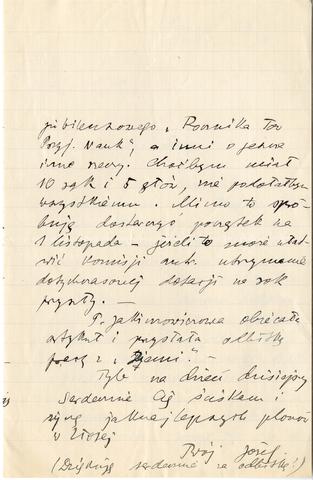 jubileuszowego „Rocznika Tow
Przyj. Nauk", a inni o jeszcze
inne rzeczy. Choćbym miał
10 rąk i 5 głów, nie podołałbym
wszystkiemu. Mimo to spró-
buję dostarczyć początek na
1 listopada – jeśli to może ułat-
wić Komisji utrzymanie
dotychczasowej dotacji na rok
przyszły. —
P. Jakimowiczowa obiecała
artykuł i przysłała odbitkę
pracy z „Ziemi". –
Tyle na dzień dzisiejszy
Serdecznie Cię ściskam i
życzę jaknajlepszych plonów
w
Twój Józef
(Dziękuję serdecznie za odbitkę!)